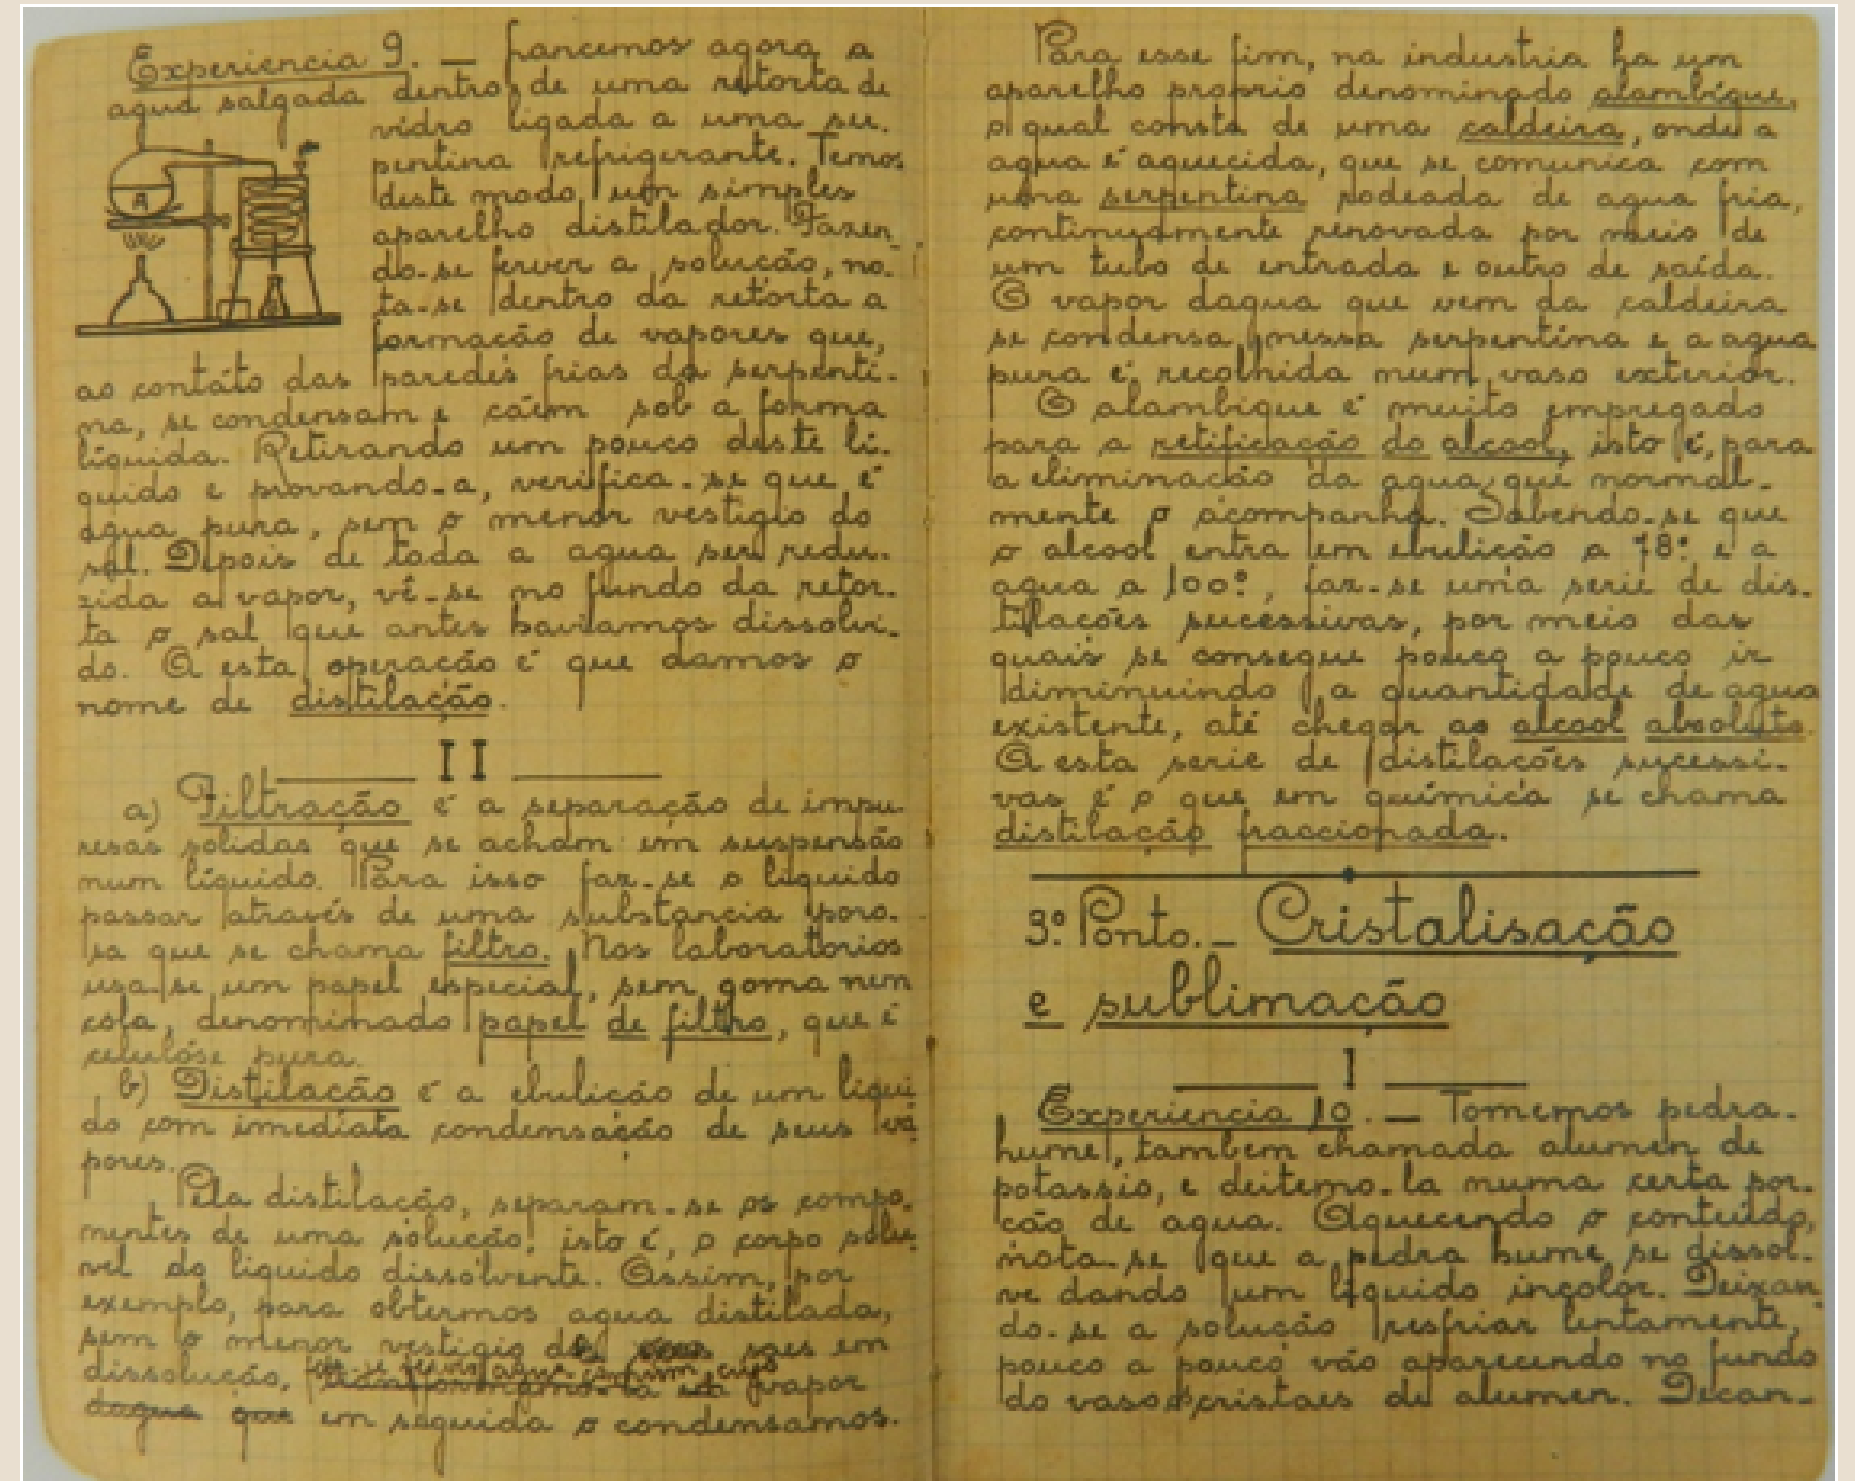 Experiencia 9. — Lancemos agora a
agua salgada dentro de uma retorta de
vidro ligada a uma ser-
pentina refrigerante. Temos
deste modo um simples
aparelho distilador. Fazen-
do-se ferver a solução, no-
ta-se dentro da retorta a
formação de vapores que,
A
ao contáto das paredes frias da serpenti-
na, se condensam e cáem sob a forma
líquida. Retirando um pouco deste lí-
quido e provando-a, verifica-se que é
agua pura, sem o menor vestigio do
sal. Depois de toda a agua ser redu-
zida a vapor, vê-se no fundo da retor-
ta o sal que antes haviamos dissolvi-
do. A esta operação é que damos o
nome de distilação.
II
a) Filtração é a separação de impu
resas solidas que se acham em suspensão
num líquido. Para isso faz-se o líquido
passar através de uma substancia poro-
sa que se chama filtro. Nos laboratorios
usa-se um papel especial, sem goma nem
cola, denominado papel de filtro, que é
celulóse pura.
b) Distilação é a ebulição de um líqui
do com imediata condensação de seus va
pores.
Pela distilação, separam-se os compo-
nentes de uma solução, isto é, o corpo solu-
vel do liquido dissolvente. Assim, por
exemplo, para obtermos agua distilada,
sem o menor vestigio de saes em
dissolução, faz-se ferver agua comum, cujo
vapor
dagua que em seguida o condensamos.
Para esse fim, na industria ha um
aparelho proprio denominado alambique,
o qual consta de uma caldeira, onde a
agua é aquecida, que se comunica com
uma serpentina rodeada de agua fria,
continuamente renovada por meio de
um tubo de entrada e outro de saída.
O vapor dagua que vem da caldeira
se condensa nessa serpentina e a agua
pura é recolhida num vaso exterior.
O alambique é muito empregado
para a retificação do alcool, isto é, para
a eliminação da agua que normal-
mente o acompanha. Sabendo-se que
o alcool entra em ebulição a 78° e a
agua a 100°, faz-se uma serie de dis-
tilações sucessivas, por meio das
quais se consegue pouco a pouco ir
diminuindo a quantidade de agua
existente, até chegar ao alcool absoluto.
A esta serie de distilações sucessi-
vas é o que em química se chama
distilação fraccionada.
3º Ponto. — Cristalisação
e sublimação
I
Experiencia 10. — Tomemos pedra-
hume, tambem chamada alumen de
potassio, e deitemo-la numa certa por-
ção de agua. Aquecendo o conteúdo,
nota-se que a pedra hume se dissol-
ve dando um líquido incolor. Deixan
do-se a solução resfriar lentamente,
pouco a pouco vão aparecendo no fundo
do vaso cristaes de alumen. Decan-